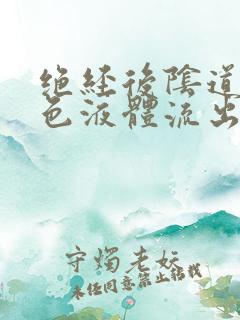 绝经後陰道
色液體流出
守燭老妖
未经同意禁止转载